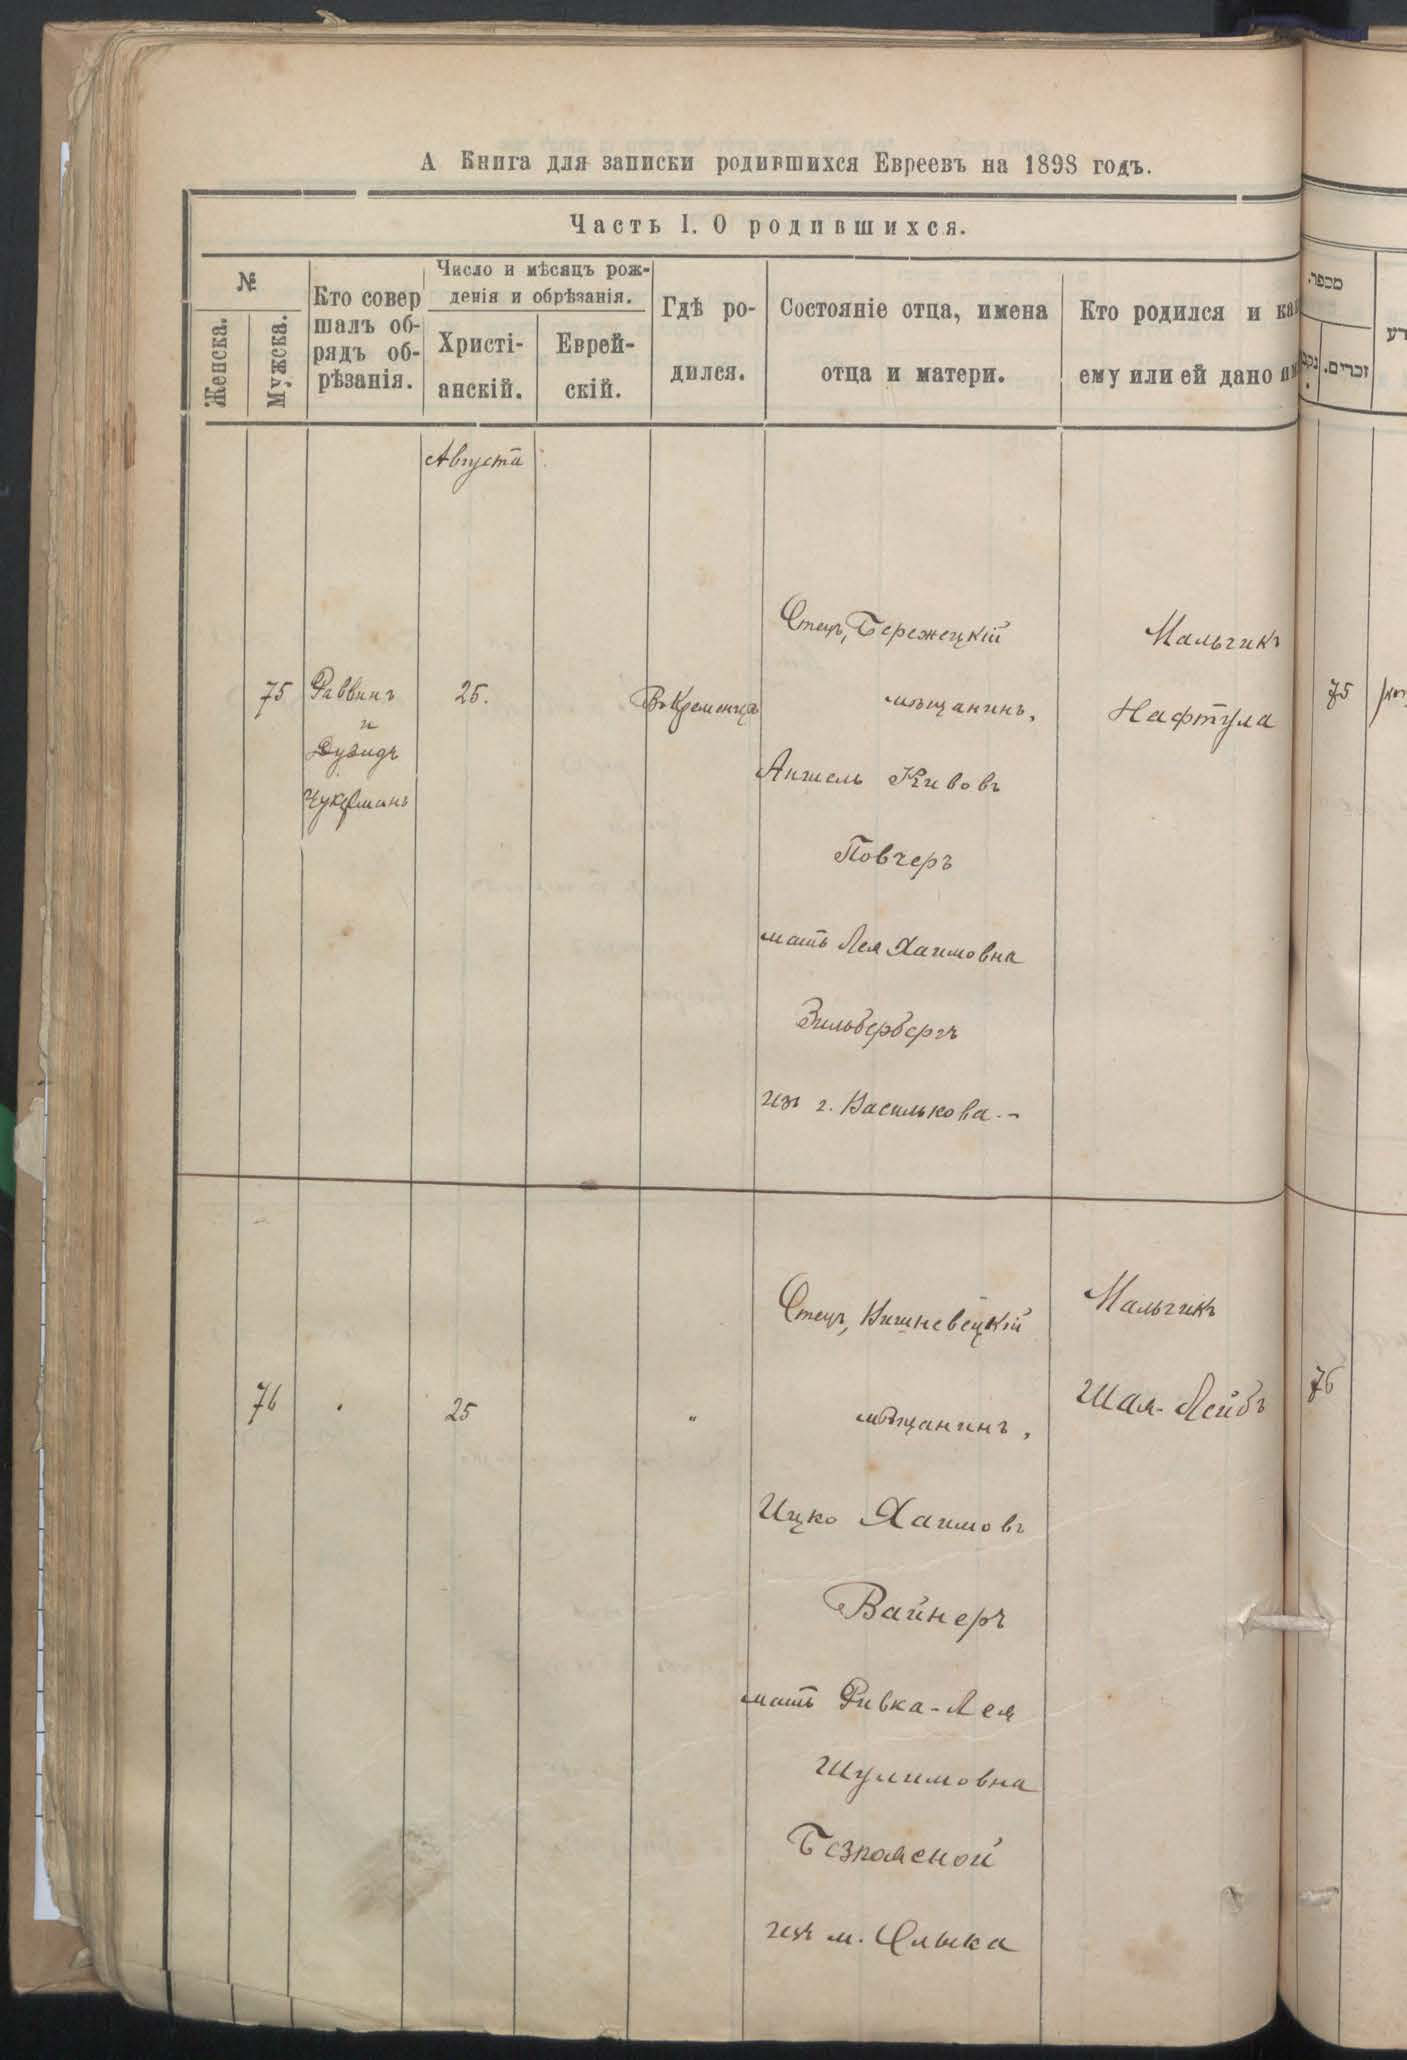 А Книга для записки родившихся Евреевъ на 1898 годъ.
Часть I. О родившихся.
№
Женска.
Мужска.
Кто совер
шалъ об-
рядъ об-
рѣзанія.
Число и мѣсяцъ рож-
денія и обрѣзанія.
Христі-
анскій.
Еврей-
скій.
Гдѣ ро-
дился.
Состояніе отца, имена
отца и матери.
Кто родился и как
ему или ей дано им
מספר.
נקב
זכרים.
Августа
75
Раввинъ
и
Дувидъ
Цукерманъ
25.
Въ Кременцѣ
Отецъ, Бережецкій
мѣщанинъ,
Аншель Кивовъ
Повчеръ
мать Лея Хаимовна
Зильбербергъ
изъ г. Василькова.-
Мальчикъ
Нафтула
75
76
25
"
Отецъ, Вишневецкій
мѣщанинъ,
Ицко Хаимовъ
Вайнеръ
мать Ривка-Лея
Шулимовна
изъ м. Олыка
Мальчикъ
Шая-Лейбъ
76